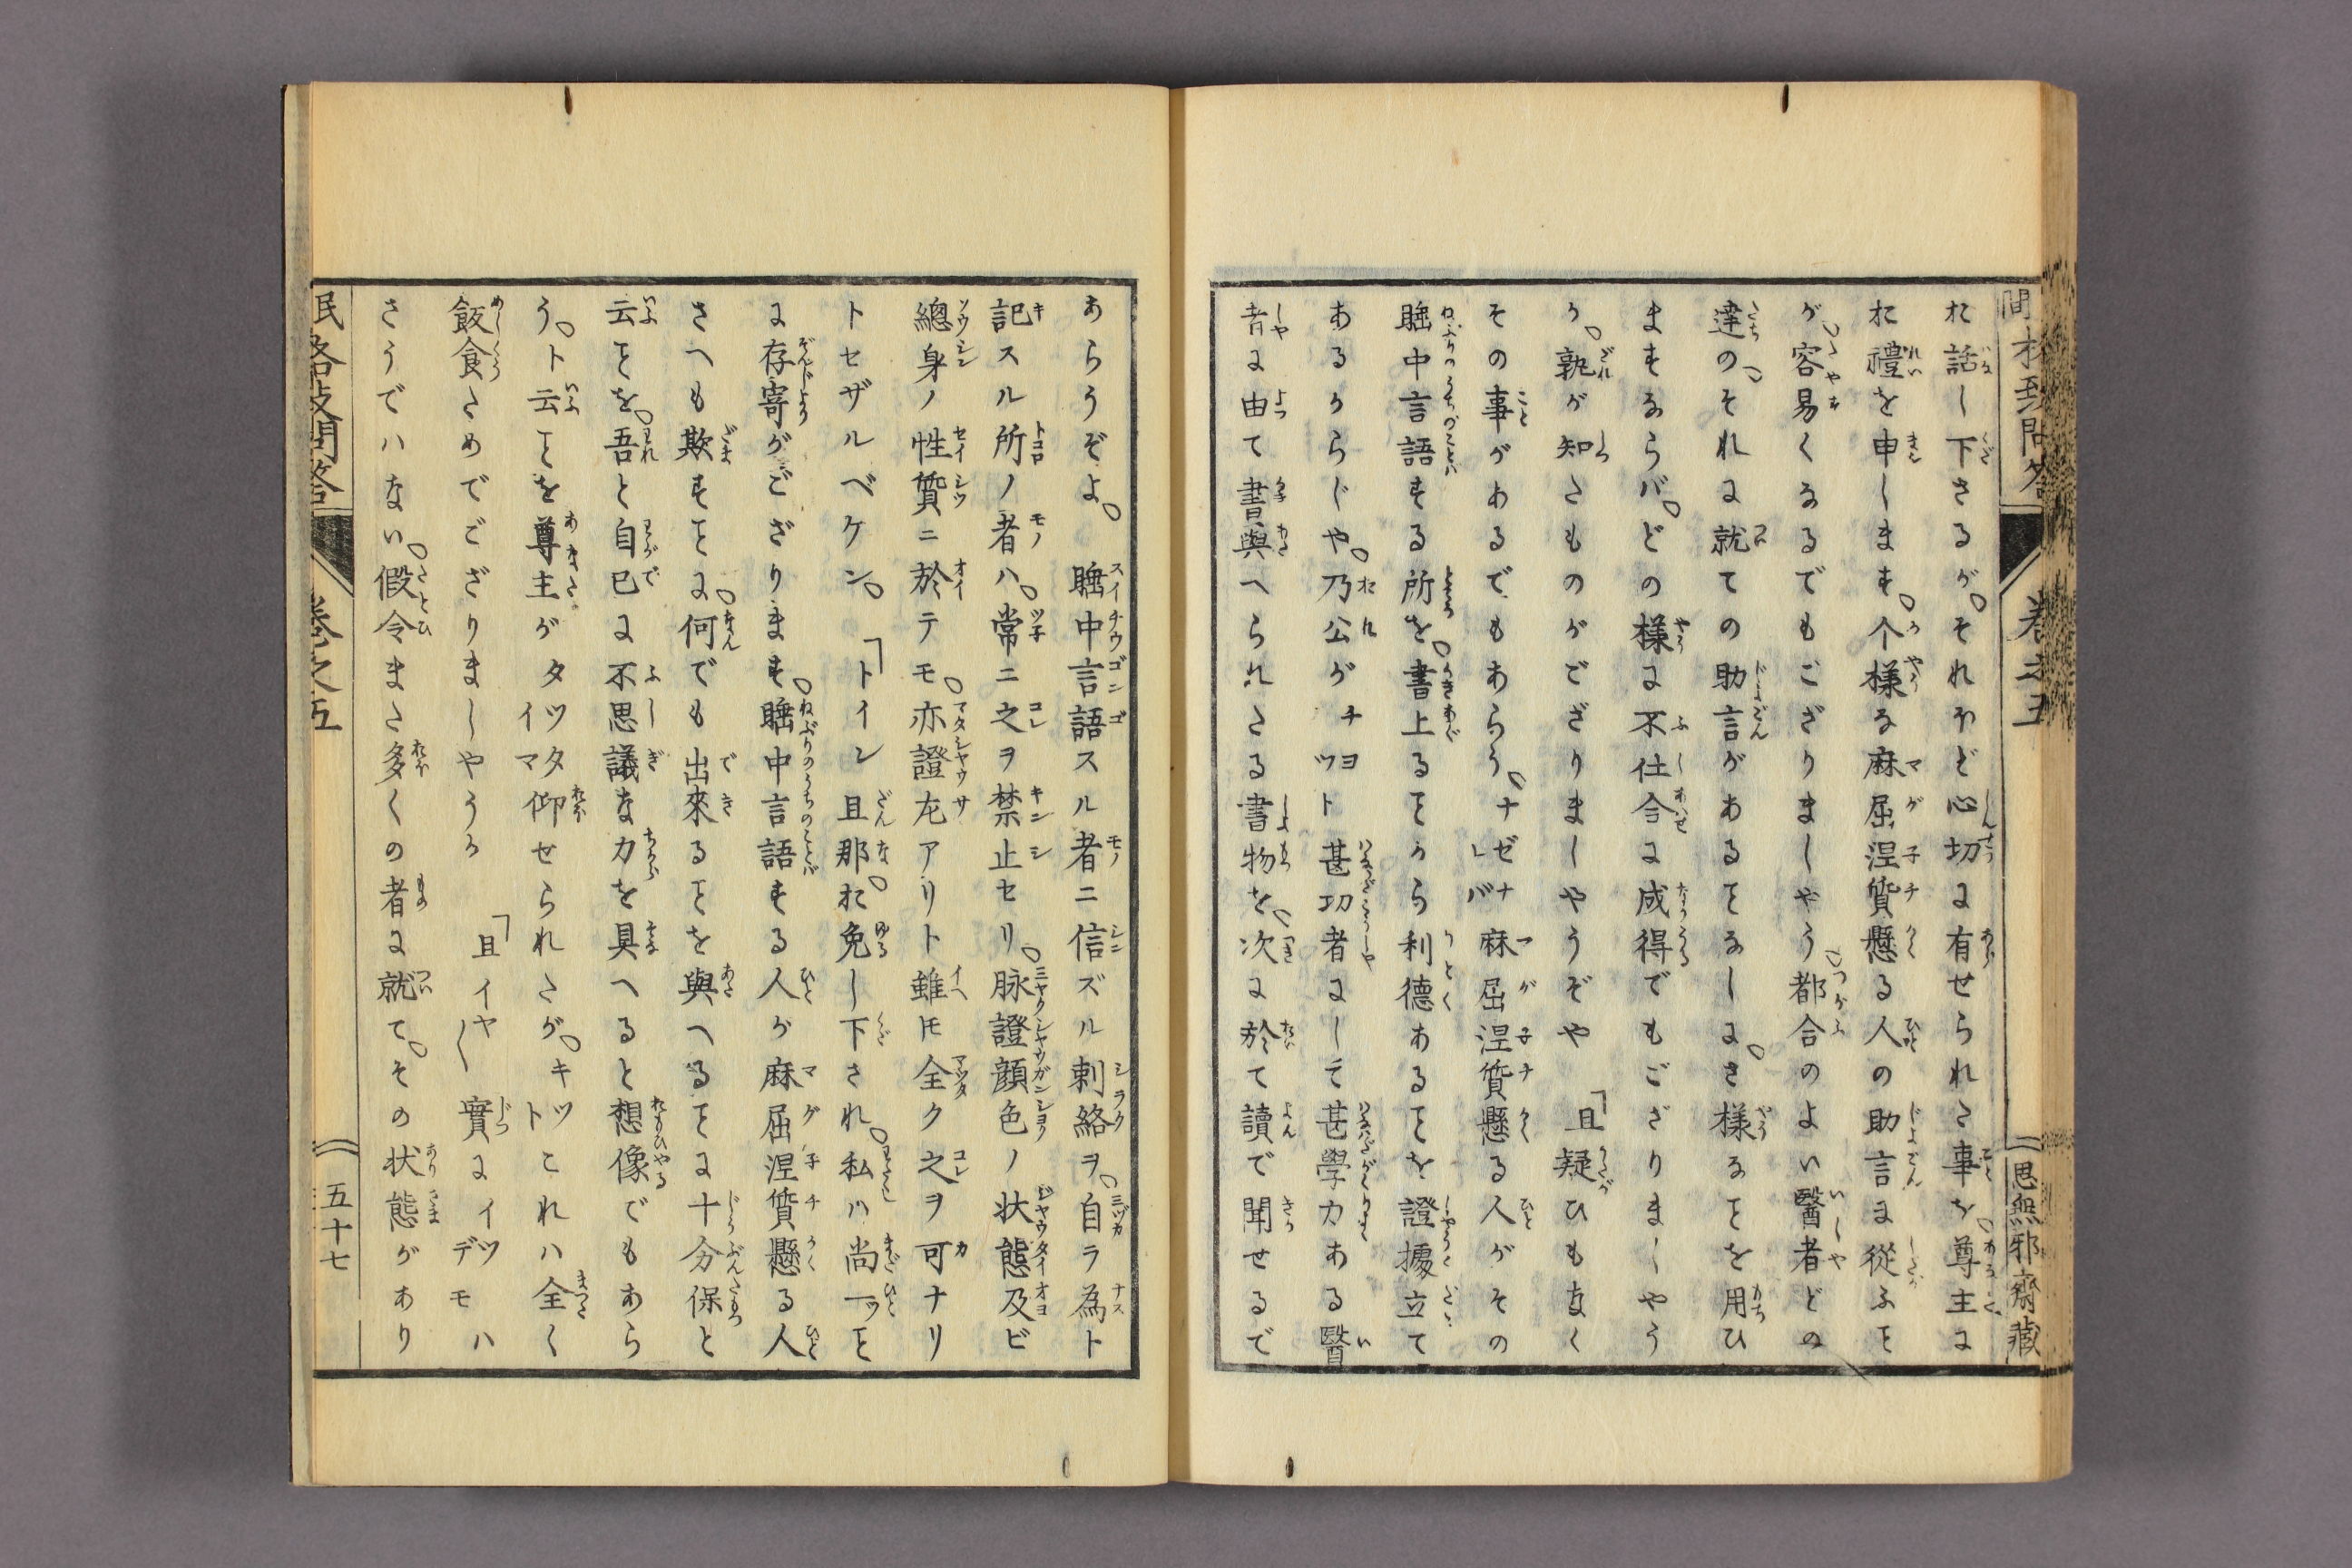 巻之五
思無邪齋藏
お話し下さるが、それほど心切に有せられた事を、尊主に
お禮を申します、个様な麻屈涅質懸る人の助言に從ふヿ
が、容易くなるでもござりましやう、都合のよい醫者どの
達の、それに就ての助言があるヿなしに、さ様なヿを用ひ
ますならバ、どの様に不仕合に成得でもござりましやう
か、孰が知たものがござりましやうぞや 「且疑ひもなく
その事があるでもあらう、ナゼナレバ麻屈涅質懸る人がその
睡中言語する所を、書上るヿから利德あるヿを證據立て
あるからじや、乃公がチヨツト甚功者にして甚學力ある醫
者に由て書與へられたる書物を、次に於て讀で聞せるで
あらうぞよ、 睡中言語スル者ニ信ズル刺絡ヲ、自ラ為ト
記スル所ノ者ハ、常ニ之ヲ禁止セリ、脉證顔色ノ状態及ビ
總身ノ性質ニ於テモ、亦證左アリト雖トモ全ク之ヲ可ナリ
トセザルベケン、 「トイン 且那、お免し下され、私ハ尚一ツヿ
に存寄がござります、睡中言語する人が麻屈涅質懸る人
さへも欺すヿに、何でも出來るヿを與へるヿに十分保と
云ヿを、吾と自已に不思議な力を具へると想像でもあら
う、ト云ヿを尊主がタツタイマ仰せられたが、キツトこれハ全く
飯食ためでござりましやうか 「且イヤ〳〵實にイツデモハ
さうでハない、假令また多くの者に就て、その状態があり
民
問答
巻之五
五十七